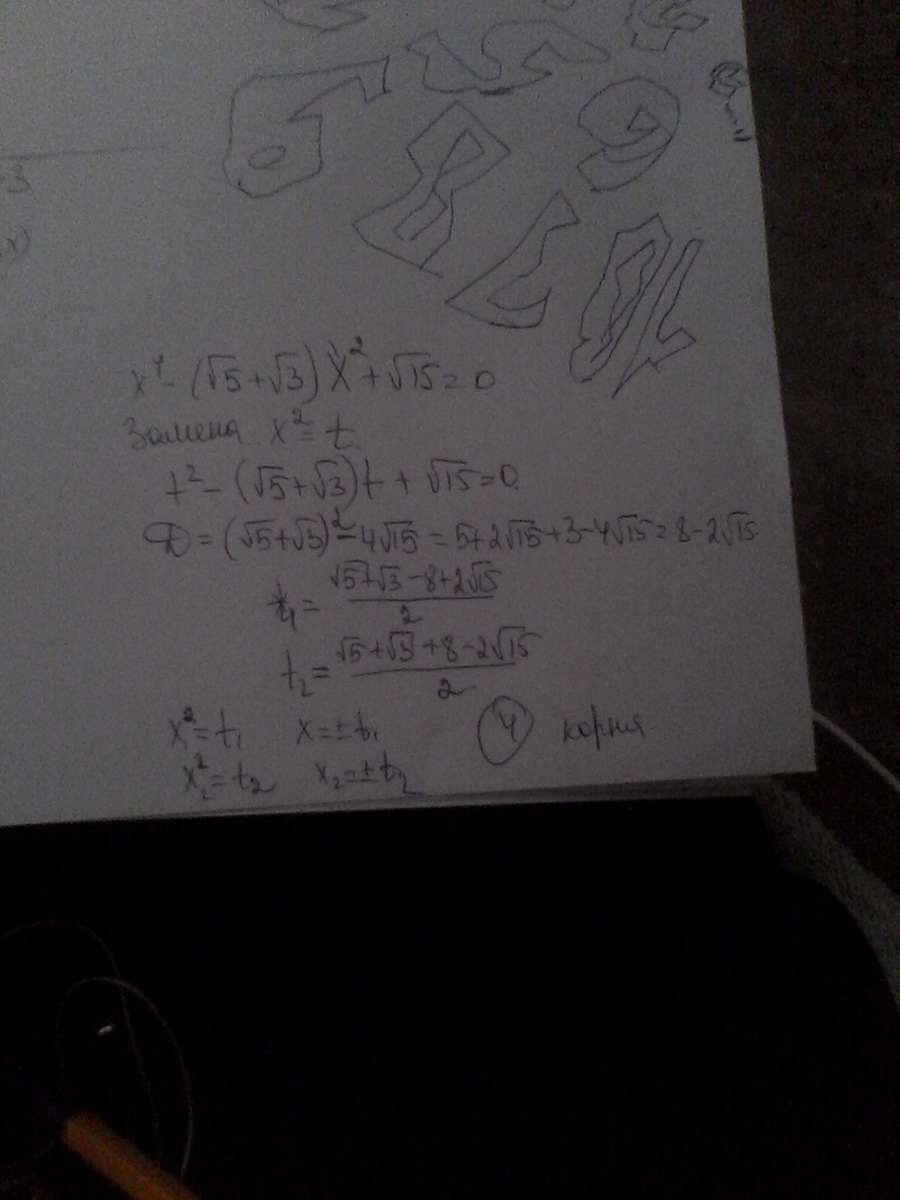 3
x)
x⁴ - (√5+√3) x² + √15 = 0
Замена x² = t
t² - (√5+√3)t + √15 = 0
D = (√5+√3)² - 4√15 = 5+2√15+3-4√15 = 8-2√15
t₁ = (√5+√3-8+2√15)/2
t₂ = (√5+√3+8-2√15)/2
x₁² = t₁ x = ±t₁ 4 корня
x₂² = t₂ x₂ = ±t₂